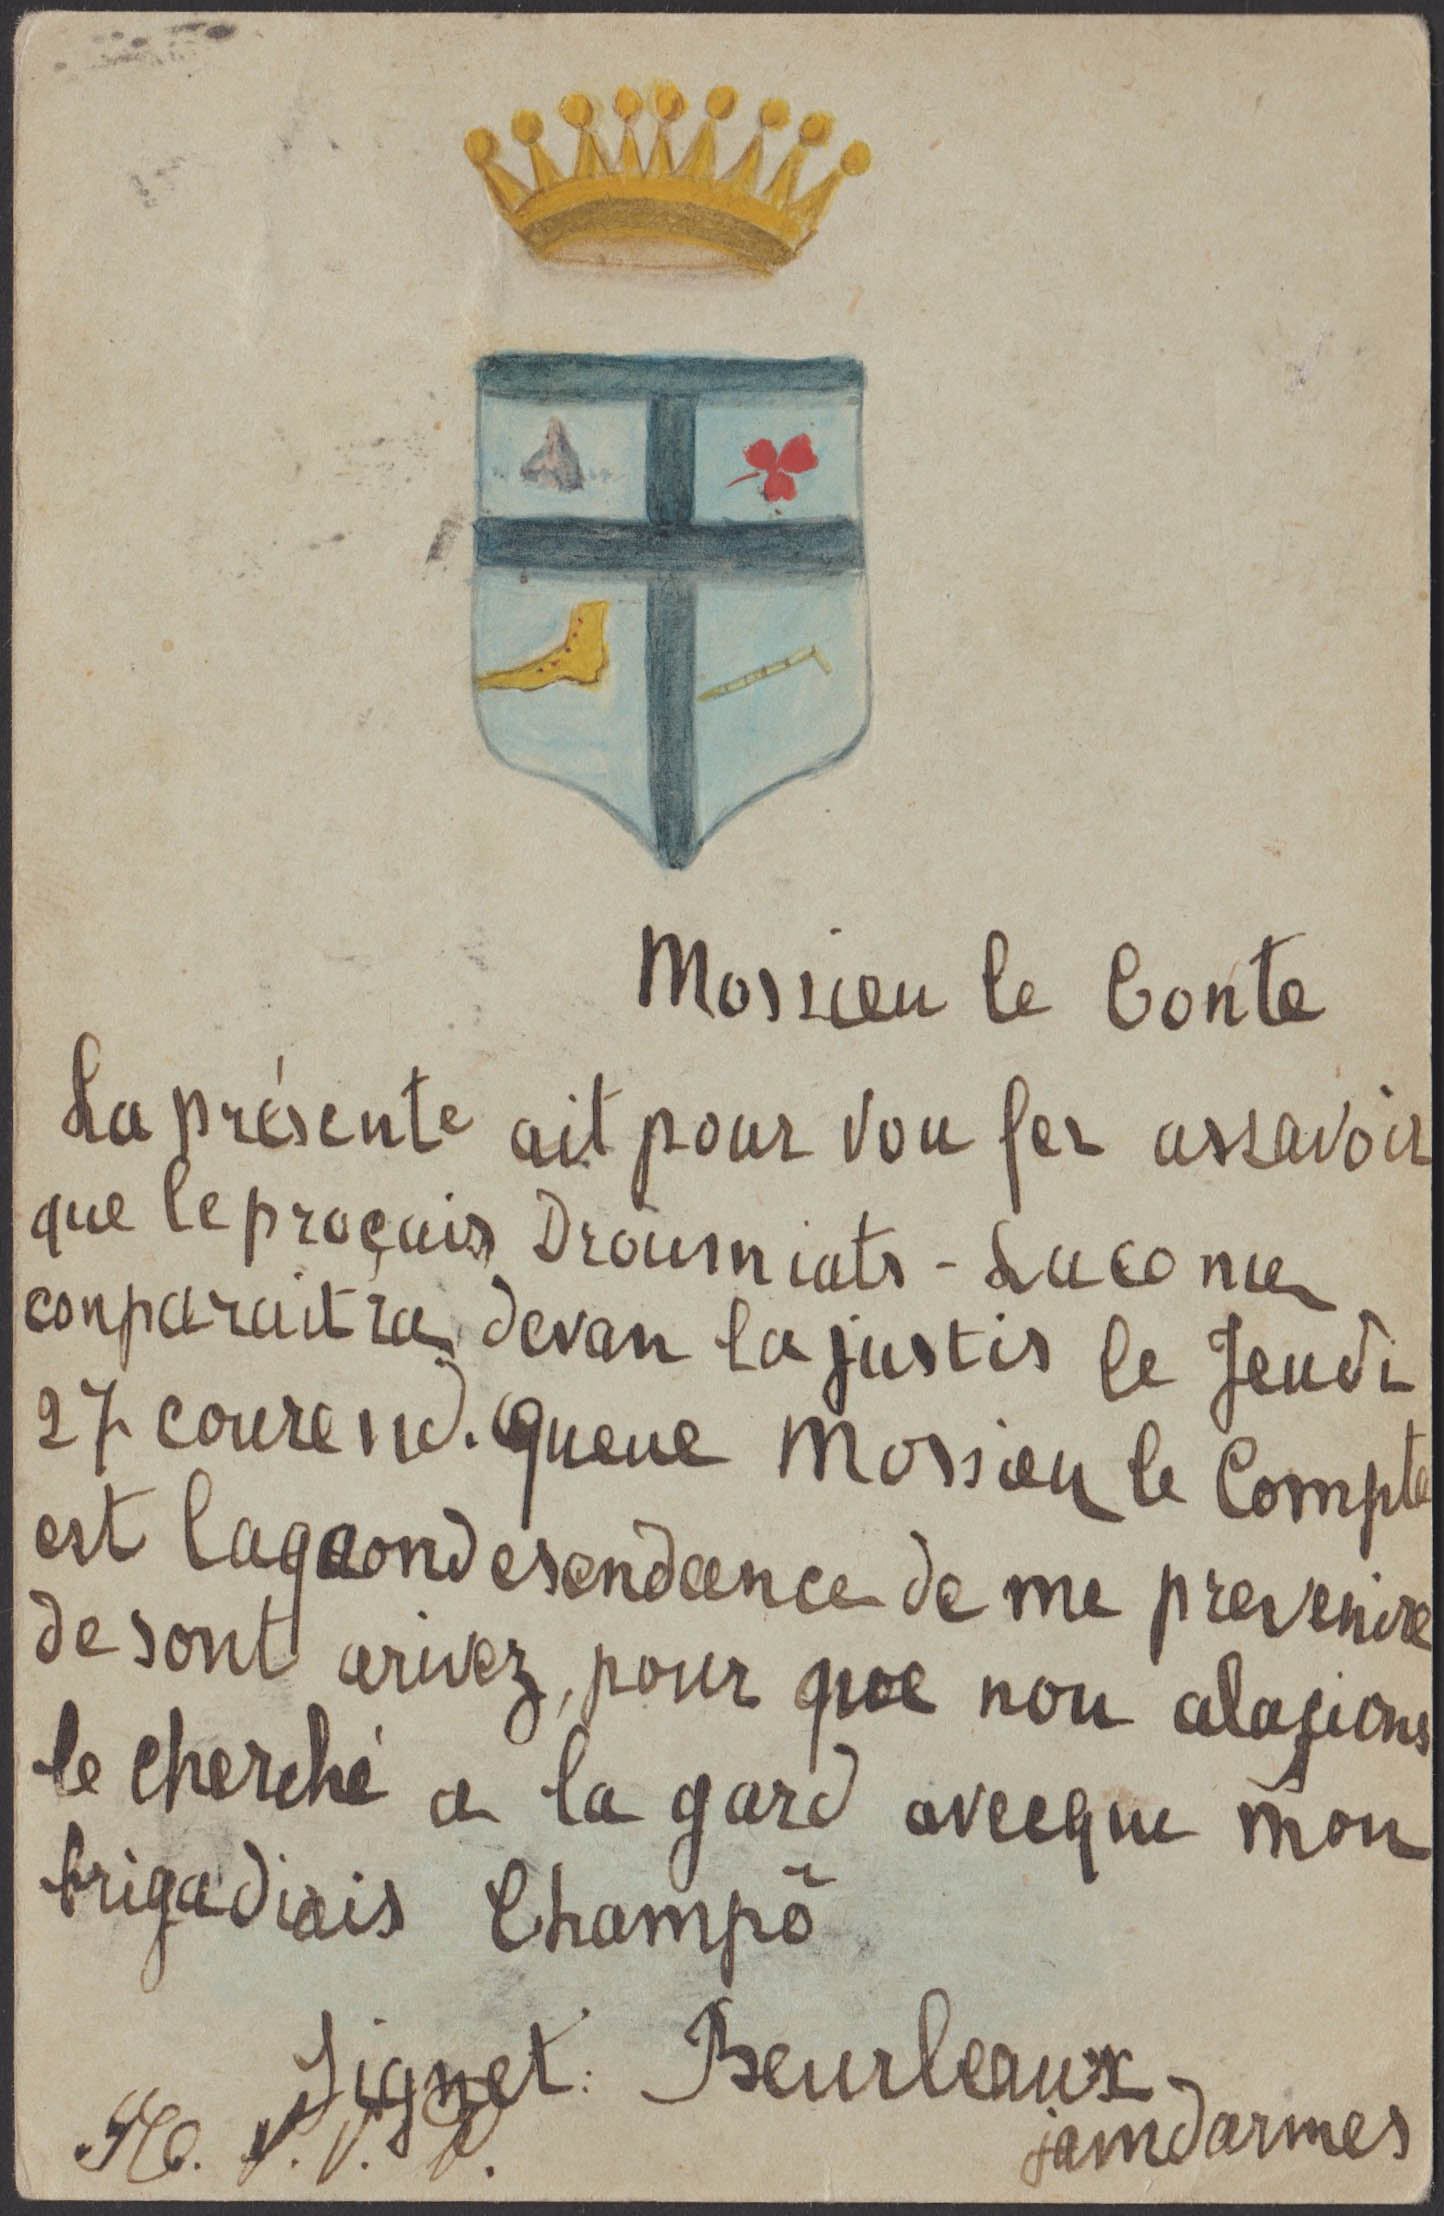 Mossieu le Conte
La présente ait pour vou fer assavoir
que le proçais Droumiats - Lacome
conparaitra devan la justis le Jeudi
27 courend. Queue Mossieu le Compte
est laqaondesendance de me prevenire
de sont arivez, pour que nou alagions
le cherché a la gard avecque mon
brigadiais Champô
Signet: Beurleaux
jamdarmes